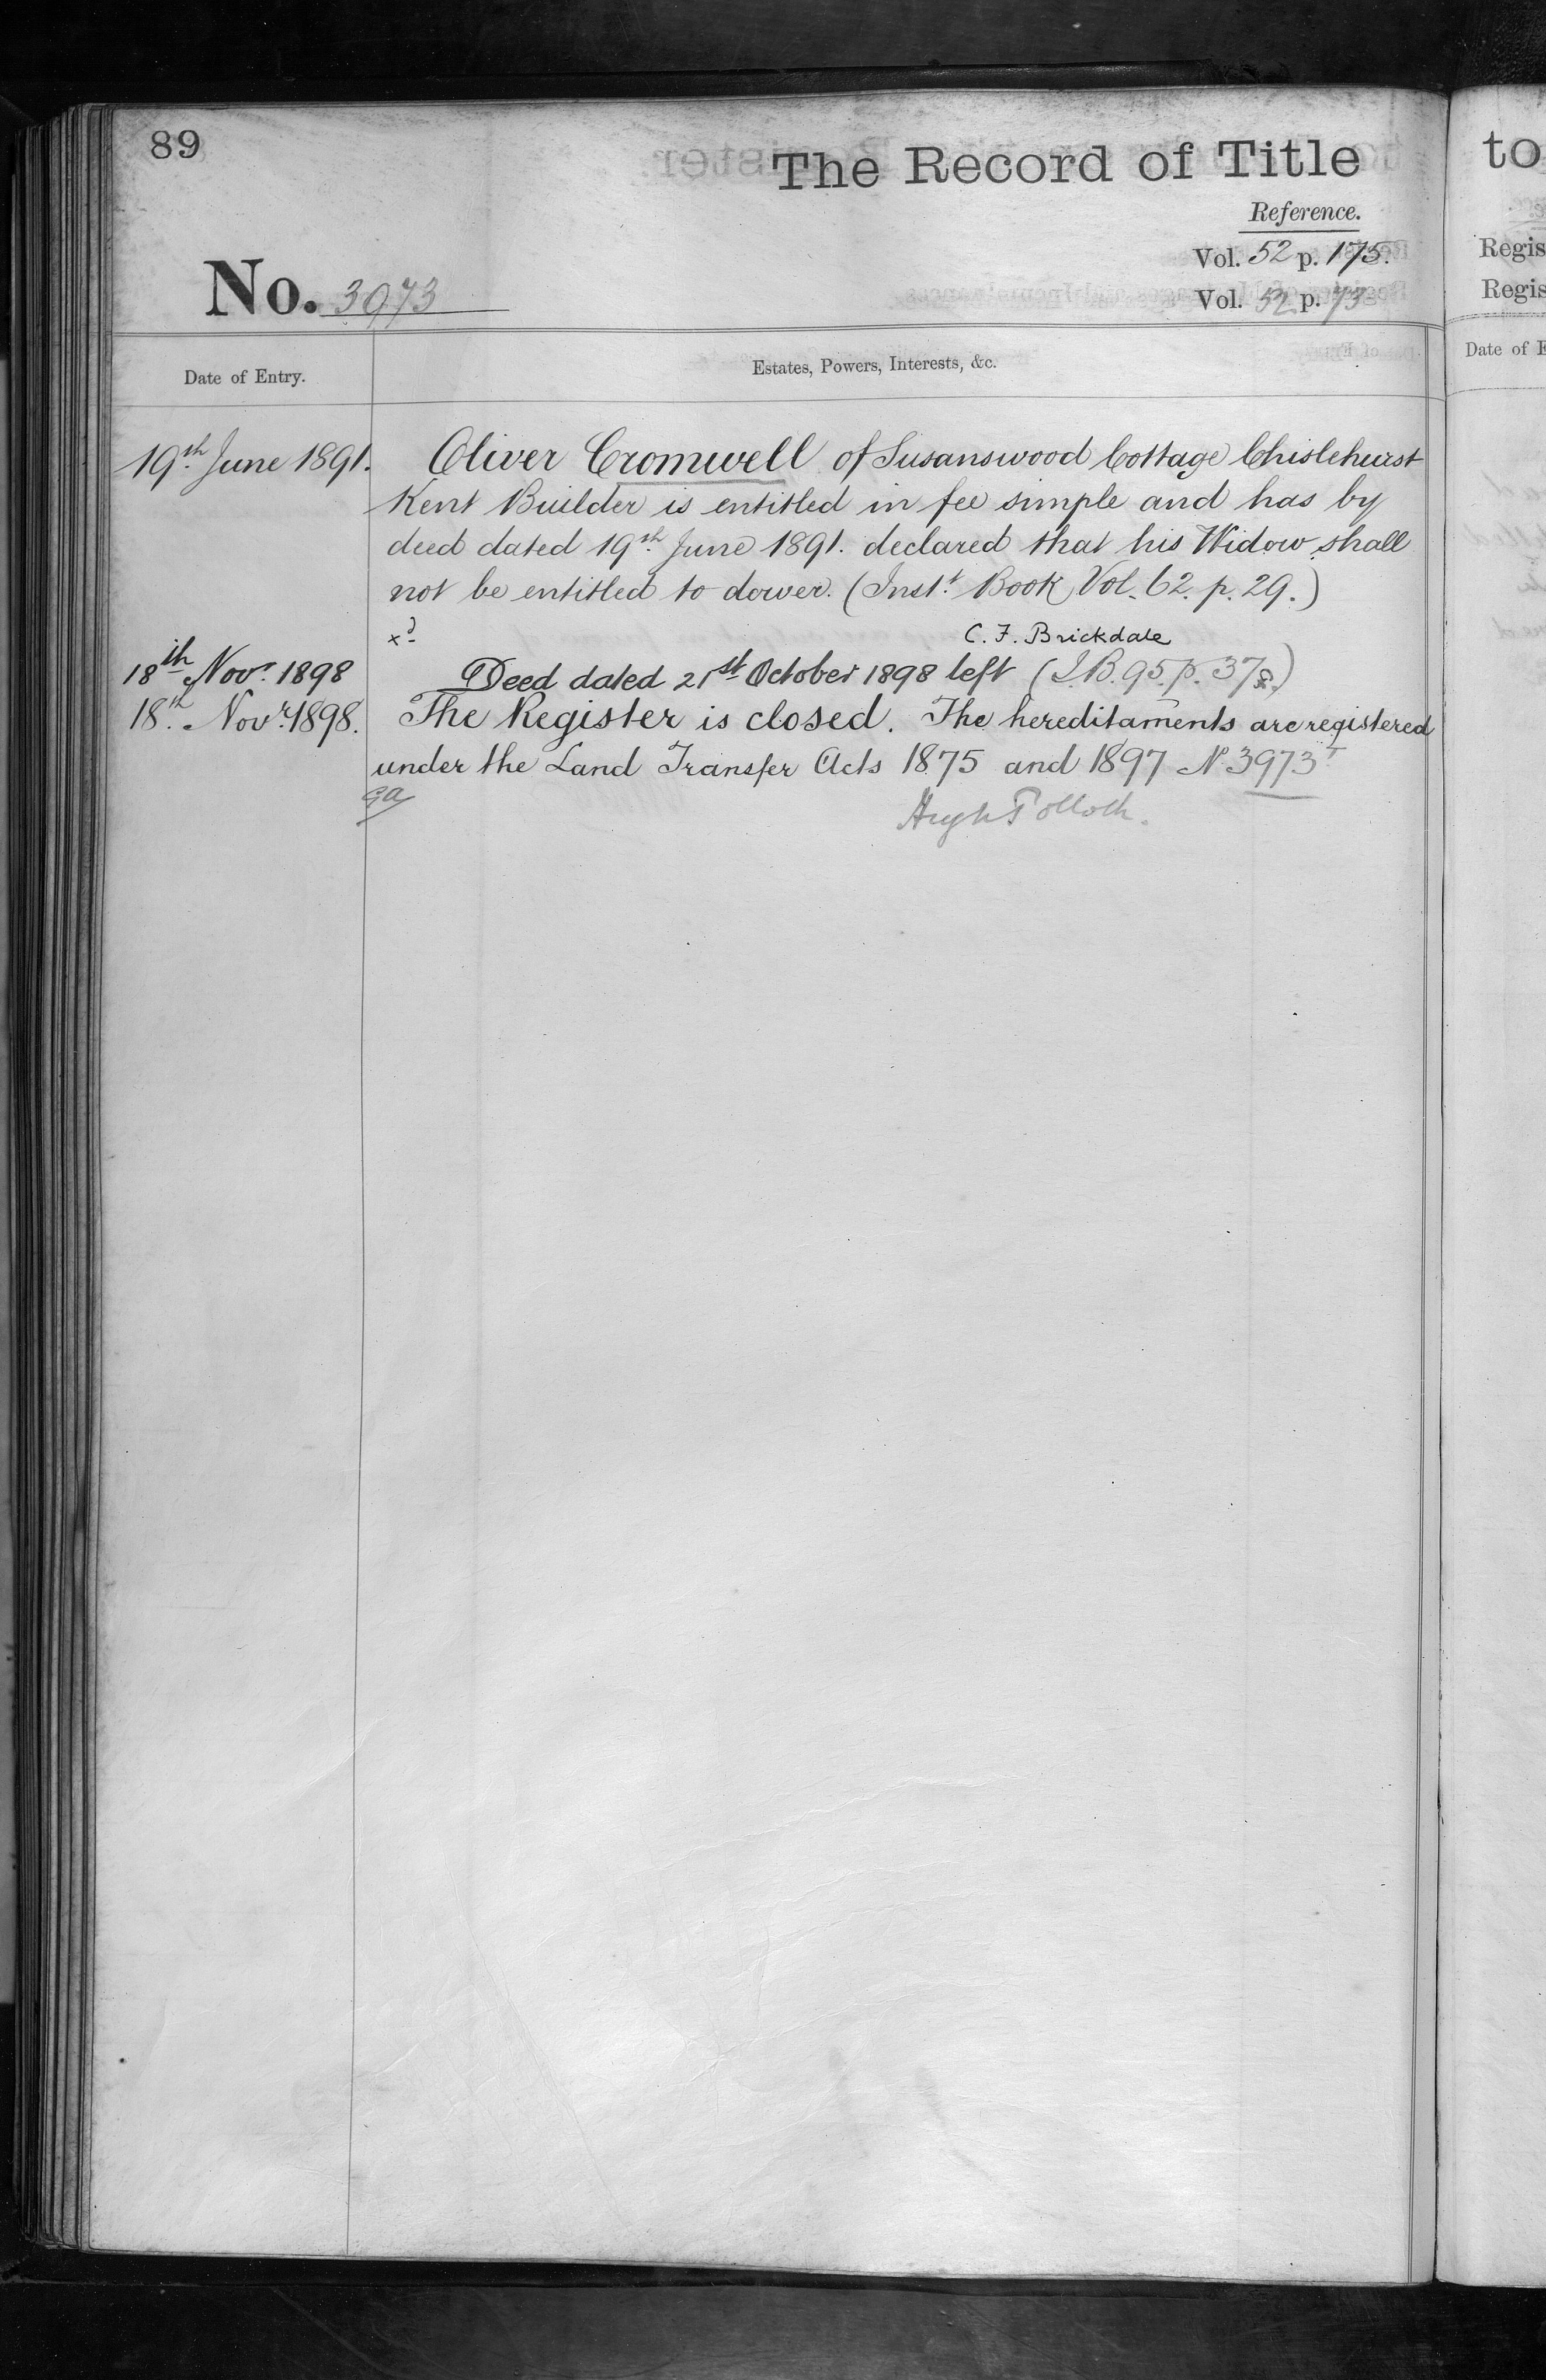 89
The Record of Title
to
Reference.
Vol. 52 p. 175.
Regis
No. 3973
Vol. 52 p. 73
Regis
Date of Entry.
Estates, Powers, Interests, &c.
Date of E
19th June 1891. Oliver Cromwell of Susanswood Cottage Chislehurst
Kent Builder is entitled in fee simple and has by
deed dated 19th June 1891. declared that his Widow shall
not be entitled to dower. (Inst.t Book Vol. 62. p. 29.)
xd C. F. Brickdale
18th Novr 1898 Deed dated 21st October 1898 left (I.B. 95. p. 378.)
18th Novr 1898. The Register is closed. The hereditaments are registered
under the Land Transfer Acts 1875 and 1897 No 3973T
ga
Hugh Pollock.